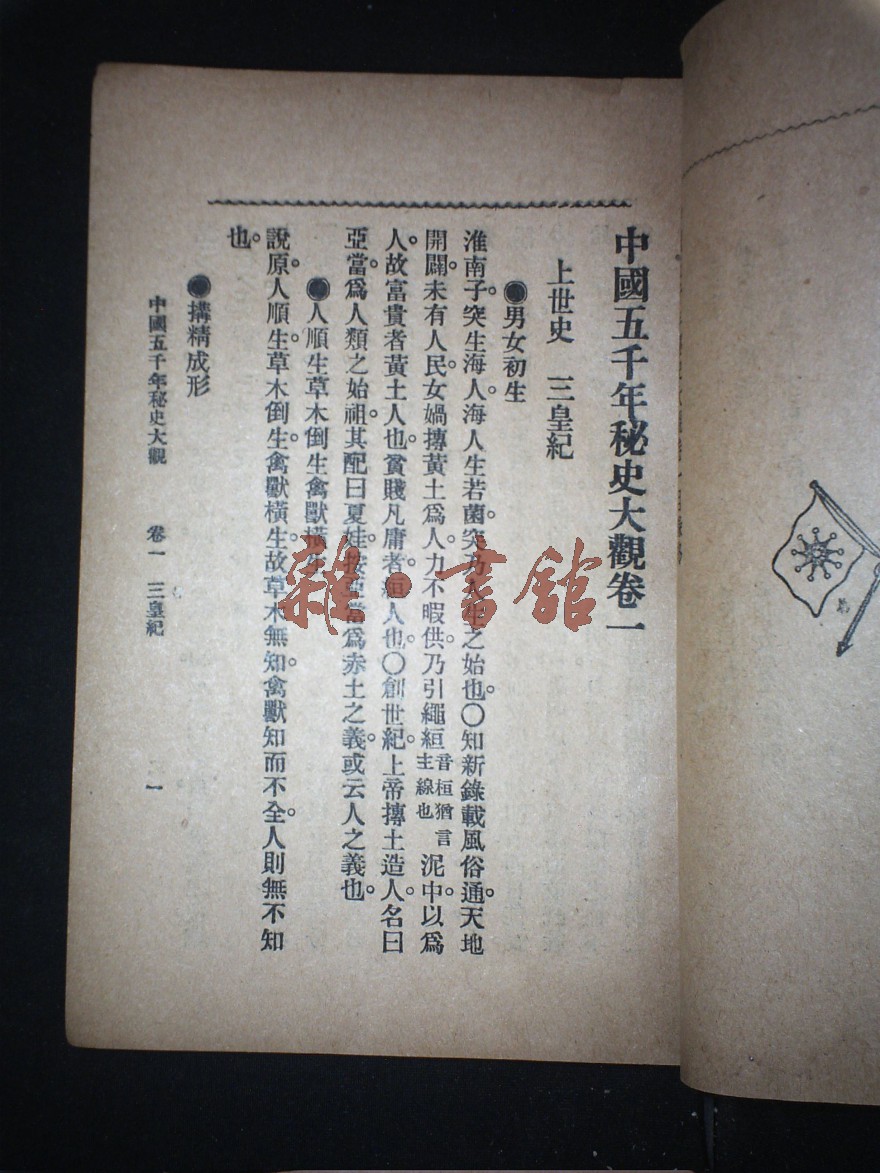 中國五千年秘史大觀卷一
上世史　三皇紀
●男女初生
淮南子。突生海人。海人生若菌。突乃人生之始也。〇知新錄載風俗通。天地
開闢。未有人民。女媧摶黃土爲人。力不暇供。乃引繩絙
音桓猶言
主線也
泥中。以爲
人。故富貴者黃土人也。貧賤凡庸者絙人也。〇創世紀。上帝摶土造人。名曰
亞當。爲人類之始祖。其配曰夏娃。按亞當爲赤土之義。或云人之義也。
●人順生草木倒生禽獸橫生
說原。人順生。草木倒生。禽獸橫生。故草木無知。禽獸知而不全。人則無不知
也。
●搆精成形
中國五千年秘史大觀　卷一　三皇紀
一
雜·書館